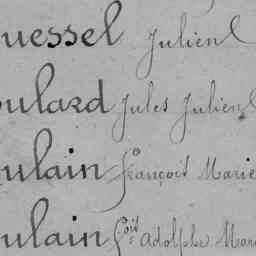 uessel Julien
oulard Jules Julien
ulain François Marie
ulain Fçois Adolphe Mari